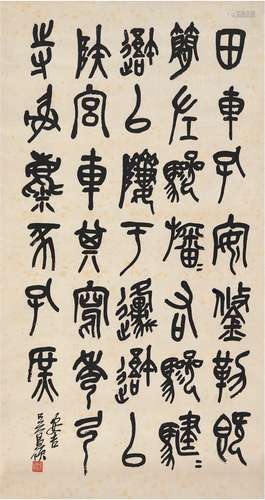 田車孔安鋚勒既
簡左驂旛=右驂騝=
䢦以隮于邍䢦以
陜宮車其寫秀弓
寺射麋豕孔庶
安吉
吳昌碩